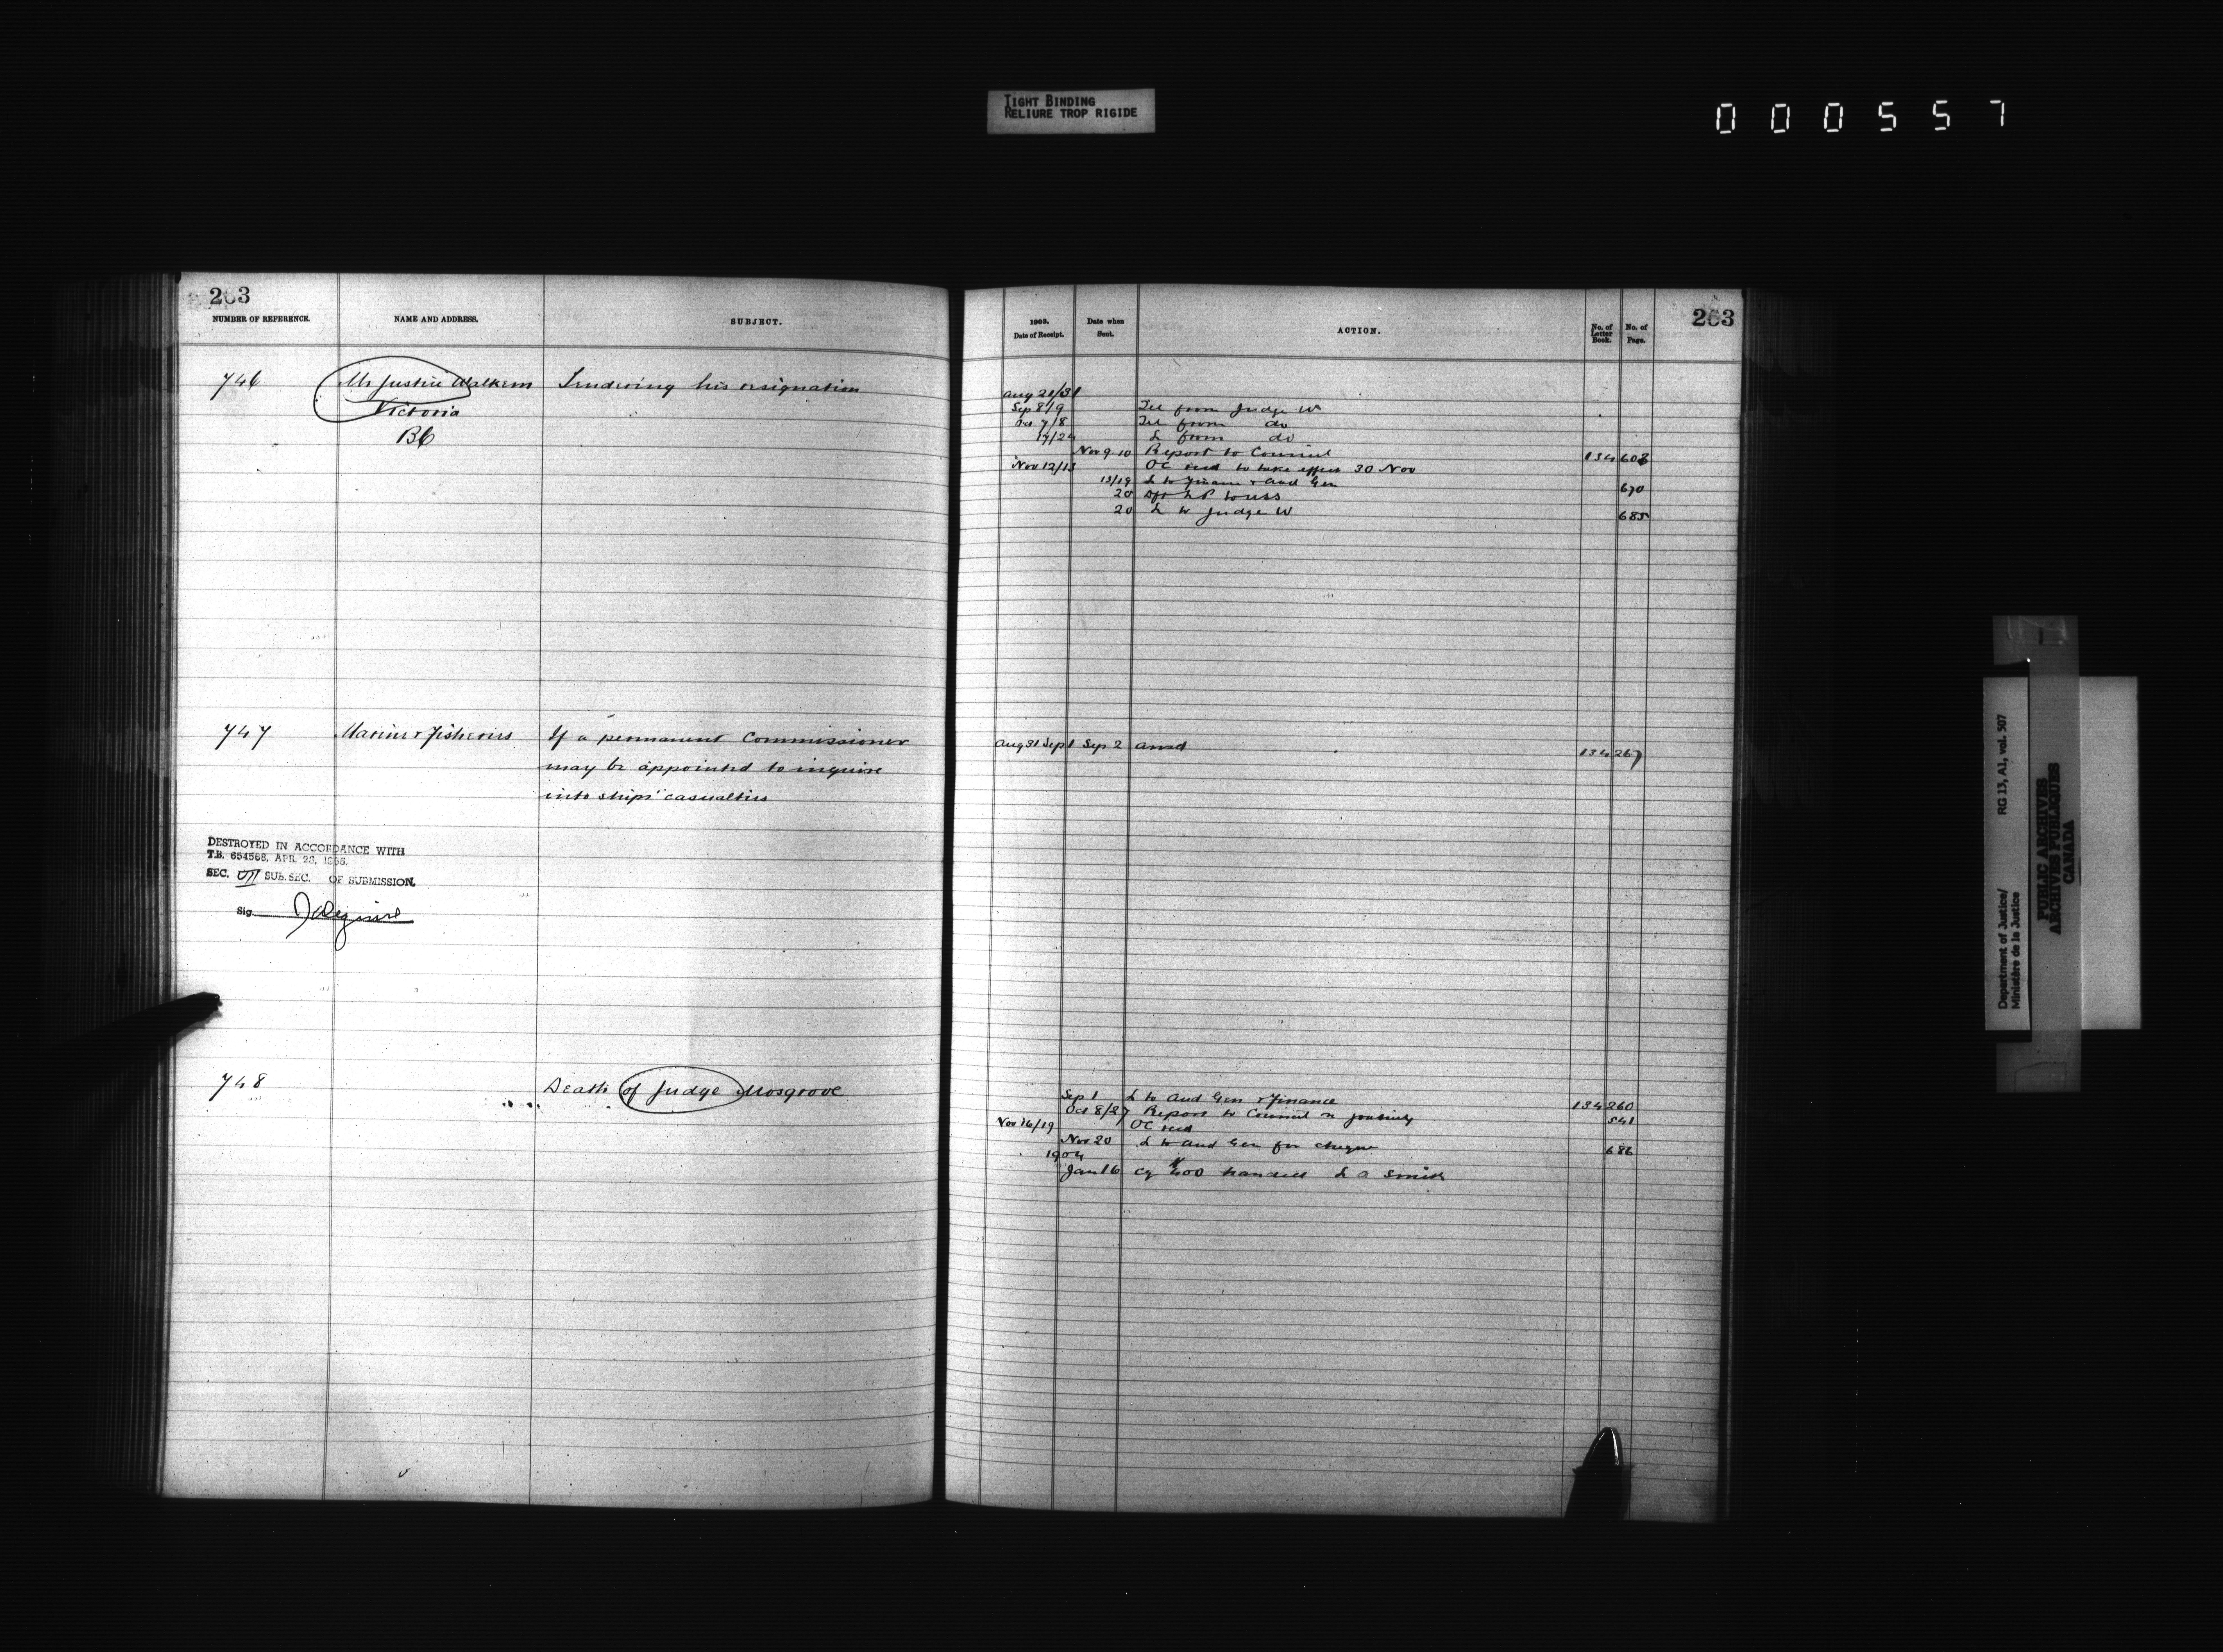 TIGHT BINDING
RELIURE TROP RIGIDE
000557
263
NUMBER OF REFERENCE. NAME AND ADDRESS. SUBJECT.
746 Mr Justice Walkem Tendering his resignation
Victoria
BC
747 Marine & Fisheries If a permanent Commissioner
may be appointed to inquire
into ships' casualties
DESTROYED IN ACCORDANCE WITH
T.B. 654568, APR. 28, 1966.
SEC. VII SUB. SEC. OF SUBMISSION.
Sig.
748 Death of Judge Mosgrove
263
1903. Date of Receipt. Date when Sent. ACTION. No. of Letter Book. No. of Page.
Aug 21/31
Sep 8/9 Tel from Judge W
Oct 7/8 Tel from do
19/24 L from do
Nov 9-10 Report to Council 134 608
Nov 12/13 OC recd to take effect 30 Nov
13/19 L to Finance & Aud Gen 670
20
20 L to Judge W 685
Aug 31 Sep 1 Sep 2 ansd 134 267
Sep 1 L to Aud Gen & Finance 134 260
Oct 8/27 Report to Council re gratuity 541
Nov 16/19 OC recd
Nov 20 L to Aud Gen for cheque 686
1904
Jan 16 Cq handed L A Smith
Department of Justice/ RG 13, A1, vol. 507
Ministère de la Justice
PUBLIC ARCHIVES
ARCHIVES PUBLIQUES
CANADA